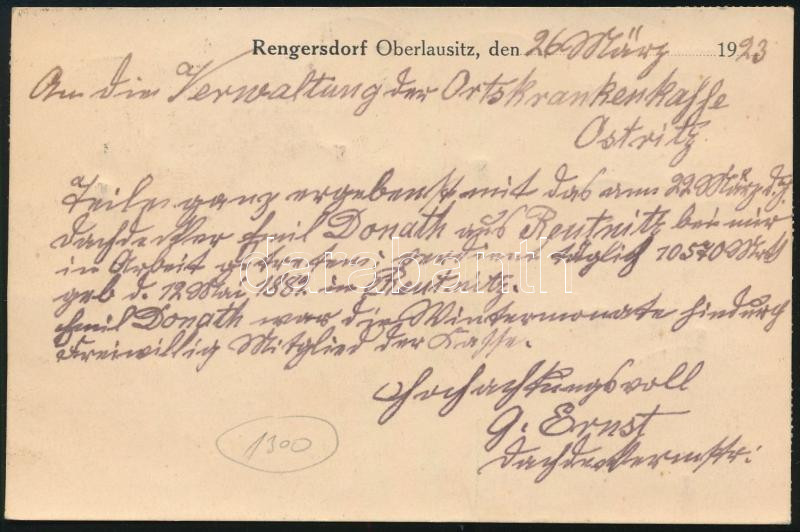 Rengersdorf Oberlausitz, den 26 März 1923
An die Verwaltung der Ortskrankenkasse
Ostritz
Teile ganz ergebenst mit das am 22 März d. J.
Dachdecker Emil Donath aus Reutnitz bei mir
in Arbeit getreten; verdient täglich 10570 Mrk
geb d. 12 Mai 1882 in Reutnitz.
Emil Donath war die Wintermonate hindurch
Freiwillig Mitglied der Kasse.
Hochachtungsvoll
G. Ernst
Dachdeckermstr:
1300
databanth